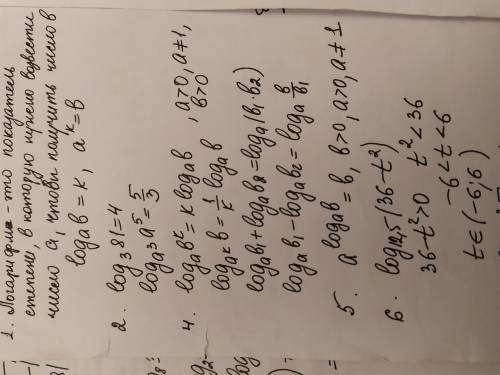 1. Логарифм - это показатель
степени, в которую нужно возвести
число a, чтобы получить число b
logₐb = k, aᵏ = b
2. log₃81 = 4
logₐ³a⁵ = 5/3
4. logₐbᵏ = k logₐb, a>0, a≠1,
b>0
logₐᵏb = 1/k logₐb
logₐb₁ + logₐb₂ = logₐ(b₁·b₂)
logₐb₁ - logₐb₂ = logₐ b₁/b₂
5. a^(logₐb) = b, b>0, a>0, a≠1
6. log₁₂,₅(36-t²)
36-t²>0 t²<36
-6<t<6
t∈(-6;6)